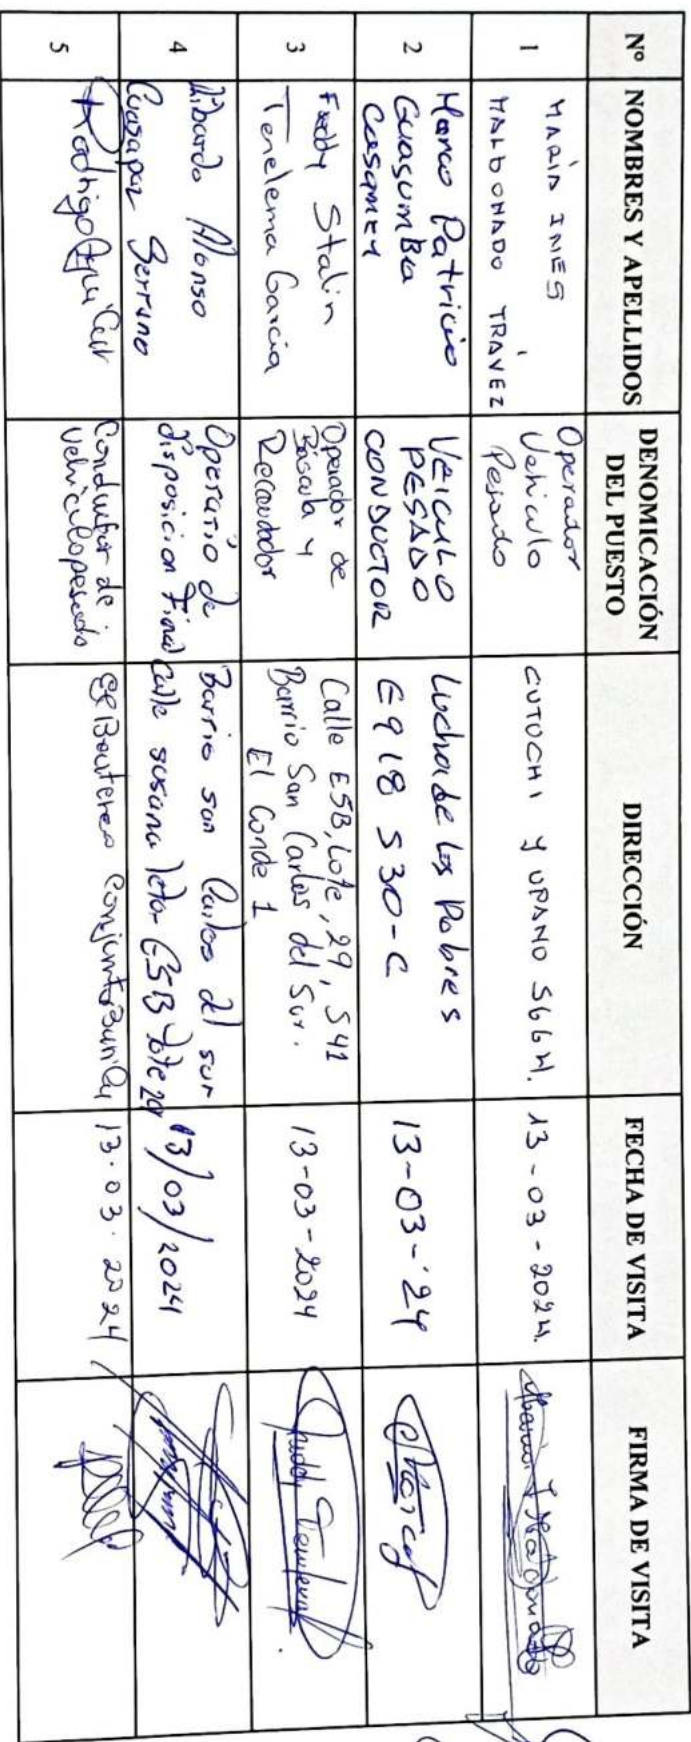 Nº NOMBRES Y APELLIDOS DENOMICACIÓN DEL PUESTO DIRECCIÓN FECHA DE VISITA FIRMA DE VISITA
1
MARIA INES
MALDONADO TRAVEZ
Operador
Vehiculo
Pesado
CUTUCHI Y UPANO S66H.
13-03-2024.
Maria I Maldonado
2
Marco Patricio
Guasumba
Casamen
VEICULO
PESADO
CONDUCTOR
Lucha de los Pobres
E918 S30-C
13-03-24
3
Freddy Stalin
Tenelema Garcia
Operador de
Báscula y
Recaudador
Calle E5B, Lote, 29, S41
Barrio San Carlos del Sur.
El Conde 1
13-03-2024
Freddy Tenelema
4
Alonso
Cuasapaz Serrano
Operario de
disposicion Final
Barrio san Carlos del sur
Calle susana letor E5B lote 29
13/03/2024
5
Rodrigo
Conductor de
vehiculo pesado
Conjunto
13.03.2024